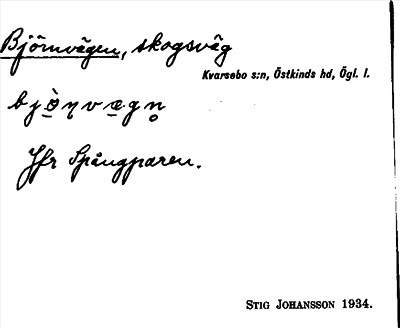 Björnvägen, skogsväg
Kvarsebo s:n, Östkinds hd, Ögl. l.
bjö̱ꞃvæ̱gn̥
Jfr Spångparen.
STIG JOHANSSON 1934.